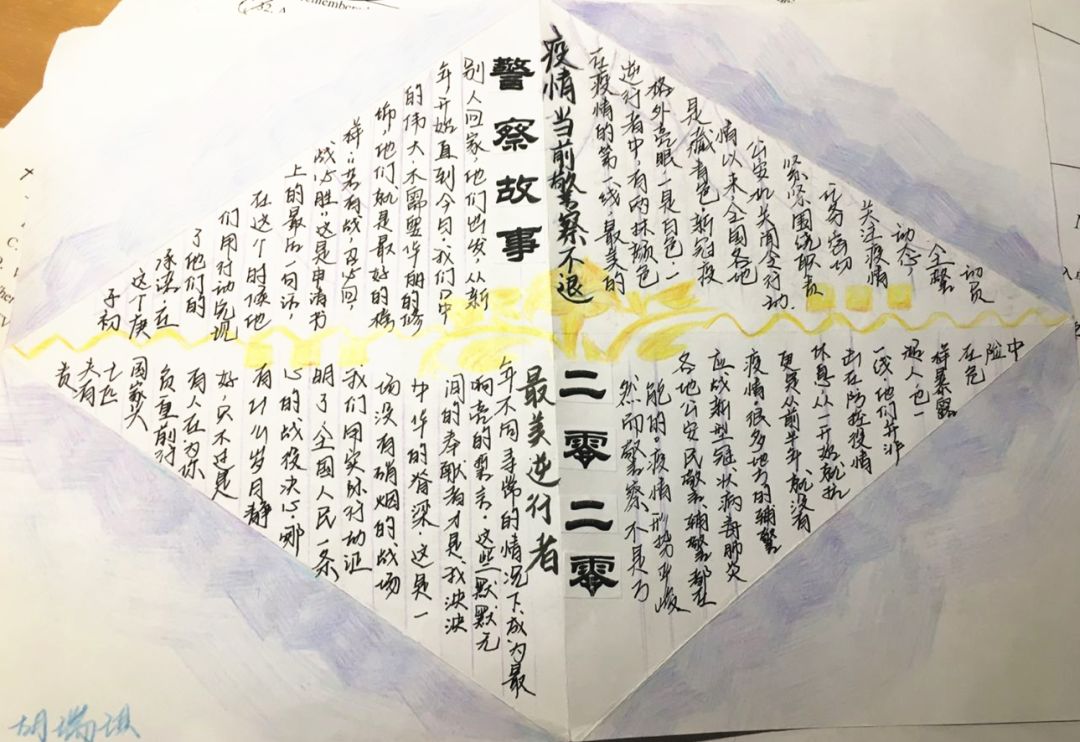 疫情当前警察不退
在疫情的第一线,最美的
逆行者中,有两抹颜色
格外亮眼,一是白色,一
是藏青色,新冠疫
情以来,全国各地
公安机关闻令行动,
紧紧围绕职责
任务,密切
关注疫情
动态,
全警
动员
警察故事
别人回家,他们出发,从新
年开始直到今日,我们心中
的伟大,不需要华丽的修
饰,他们就是最好的榜
样:“若有战,召必回,
战必胜”这是申请书
上的最后一句话,
在这个时候他
们用行动兑现
了他们的
承诺,在
这个庚
子初
二零二零
然而警察不是万
能的,疫情形势严峻
各地公安民警、辅警都在
应战新型冠状病毒肺炎
疫情很多地方的辅警
更是从前半年就没有
休息,从一开始就扎
出在防控疫情
一线,他们并非
超人,也一
样暴露
在危
险中
最美逆行者
年不同寻常的情况下,成为最
响亮的誓言,这些默默无
闻的奉献者才是我泱泱
中华的脊梁,这是一
场没有硝烟的战场
我们用实际行动证
明了,全国人民一条
心的战役决心,哪
有什么岁月静
好,只不过是
有人在为你
负重前行
国家兴
亡匹
夫有
责
胡瑞琪